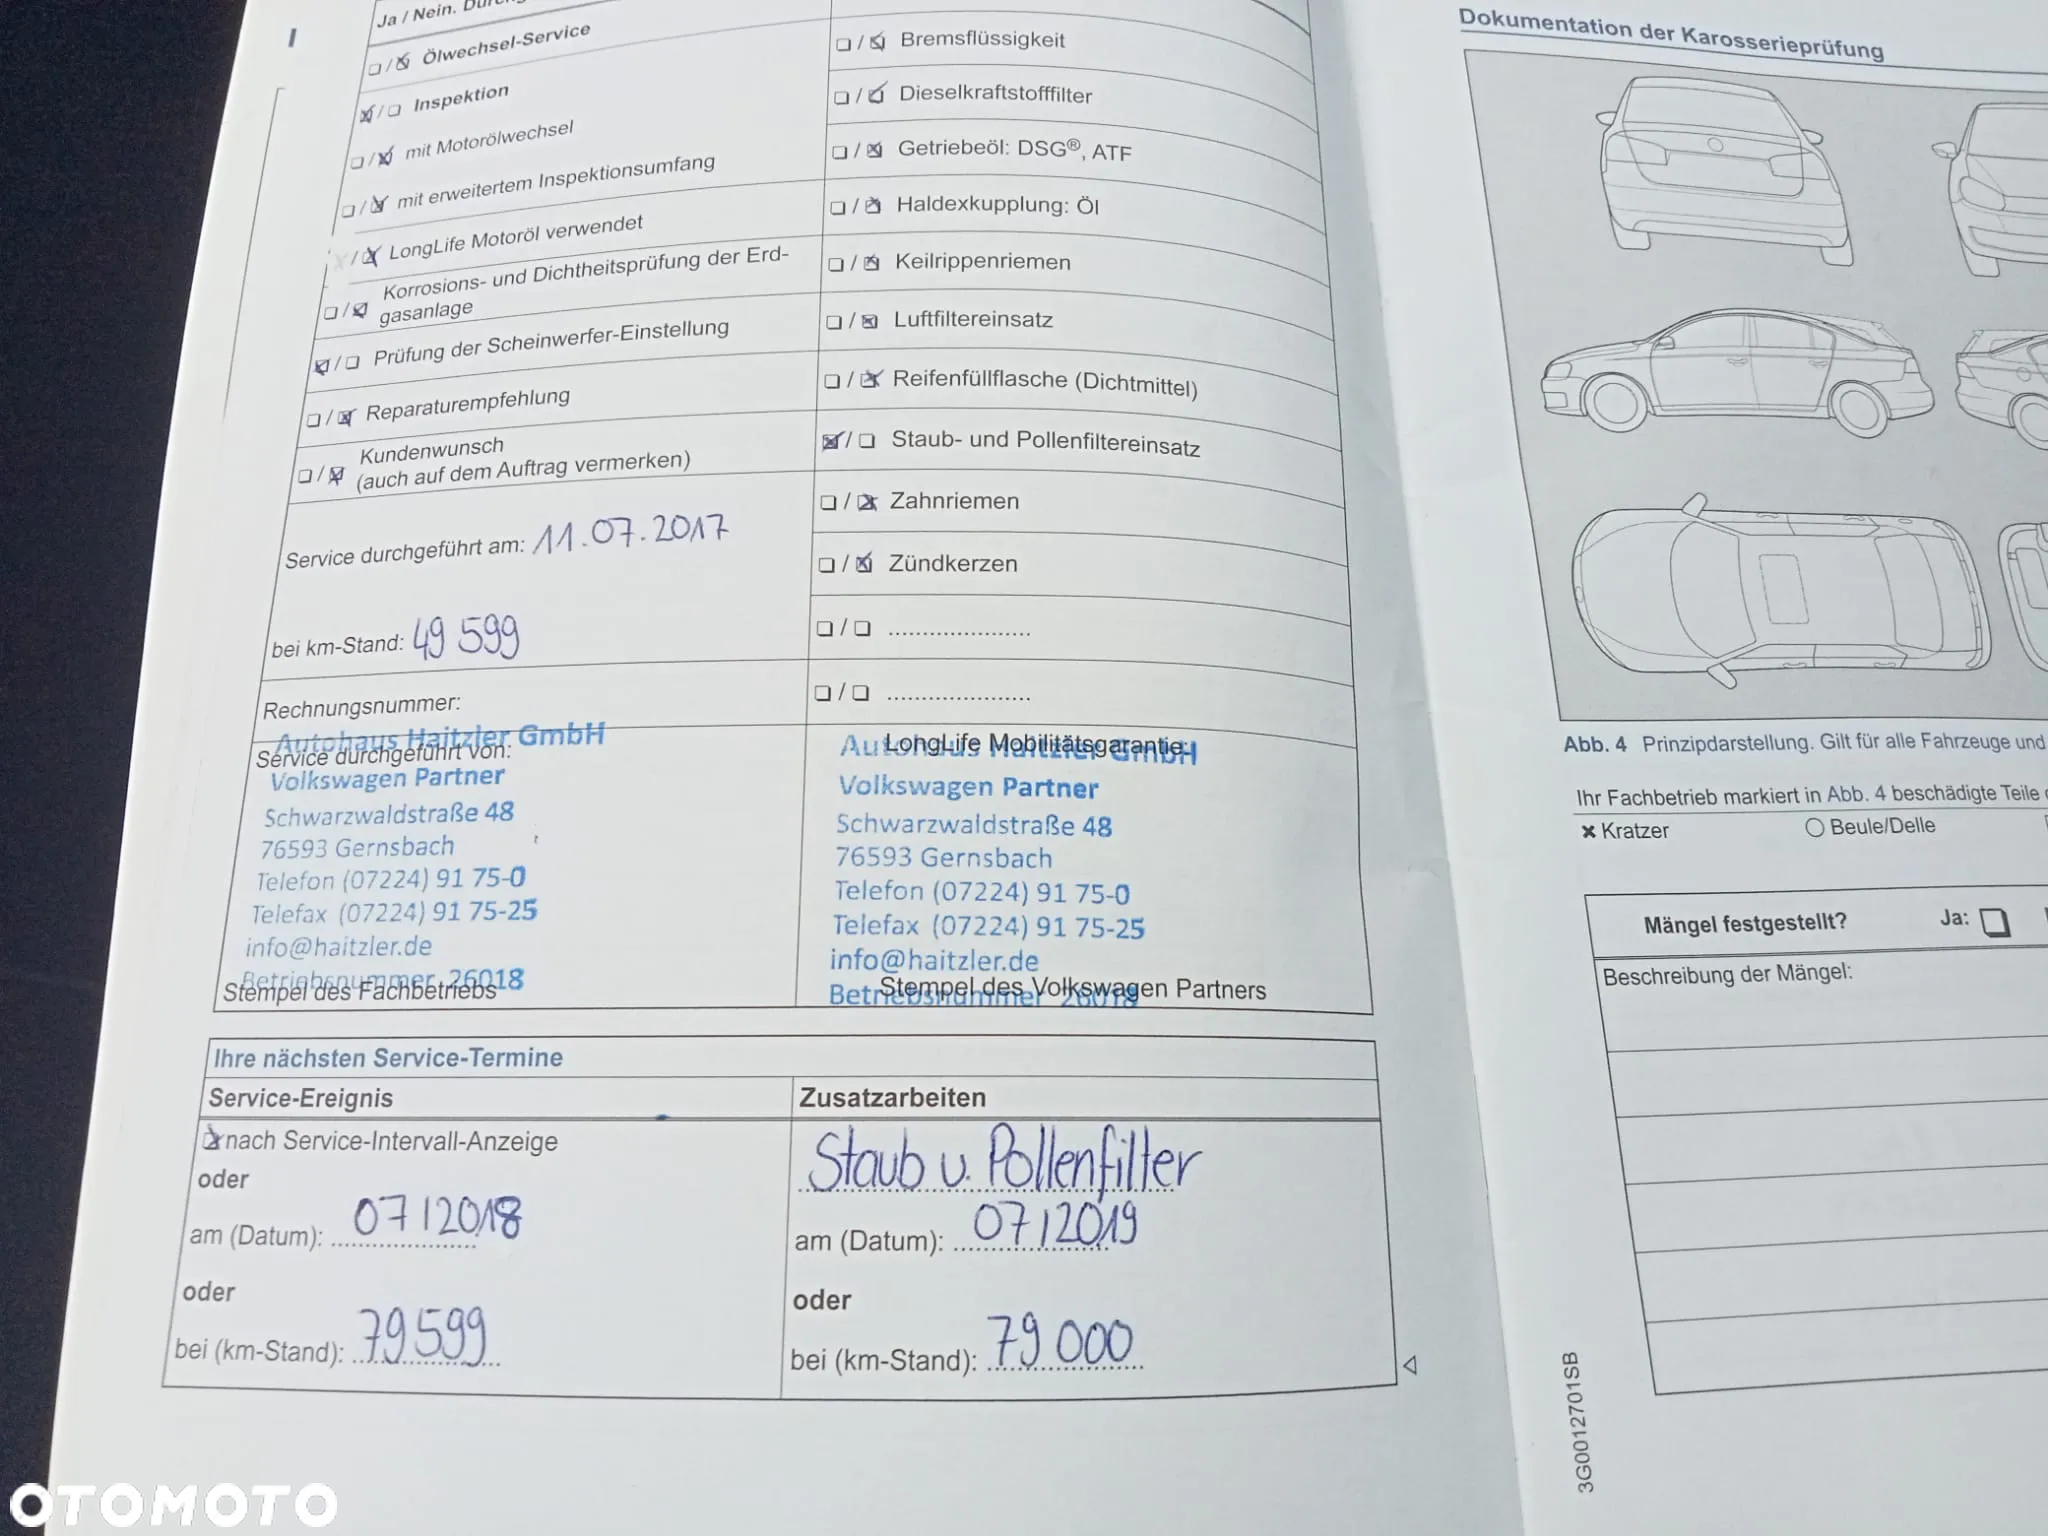 Ja / Nein.
Ölwechsel-Service
Inspektion
mit Motorölwechsel
mit erweitertem Inspektionsumfang
LongLife Motoröl verwendet
Korrosions- und Dichtheitsprüfung der Erd-
gasanlage
Prüfung der Scheinwerfer-Einstellung
Reparaturempfehlung
Kundenwunsch
(auch auf dem Auftrag vermerken)
Service durchgeführt am: 11.07.2017
bei km-Stand: 49 599
Rechnungsnummer:
Autohaus Haitzler GmbH
Service durchgeführt von:
Volkswagen Partner
Schwarzwaldstraße 48
76593 Gernsbach
Telefon (07224) 91 75-0
Telefax (07224) 91 75-25
info@haitzler.de
Betriebsnummer 26018
Stempel des Fachbetriebs
Bremsflüssigkeit
Dieselkraftstofffilter
Getriebeöl: DSG®, ATF
Haldexkupplung: Öl
Keilrippenriemen
Luftfiltereinsatz
Reifenfüllflasche (Dichtmittel)
Staub- und Pollenfiltereinsatz
Zahnriemen
Zündkerzen
LongLife Mobilitätsgarantie:
Autohaus Haitzler GmbH
Volkswagen Partner
Schwarzwaldstraße 48
76593 Gernsbach
Telefon (07224) 91 75-0
Telefax (07224) 91 75-25
info@haitzler.de
Stempel des Volkswagen Partners
Betriebsnummer 26018
Ihre nächsten Service-Termine
Service-Ereignis
nach Service-Intervall-Anzeige
oder
am (Datum): 07/2018
oder
bei (km-Stand): 79599
Zusatzarbeiten
Staub u. Pollenfilter
am (Datum): 07/2019
oder
bei (km-Stand): 79 000
Dokumentation der Karosserieprüfung
Abb. 4 Prinzipdarstellung. Gilt für alle Fahrzeuge und
Ihr Fachbetrieb markiert in Abb. 4 beschädigte Teile
Kratzer
Beule/Delle
Mängel festgestellt? Ja:
Beschreibung der Mängel:
3G0012701SB
OTOMOTO